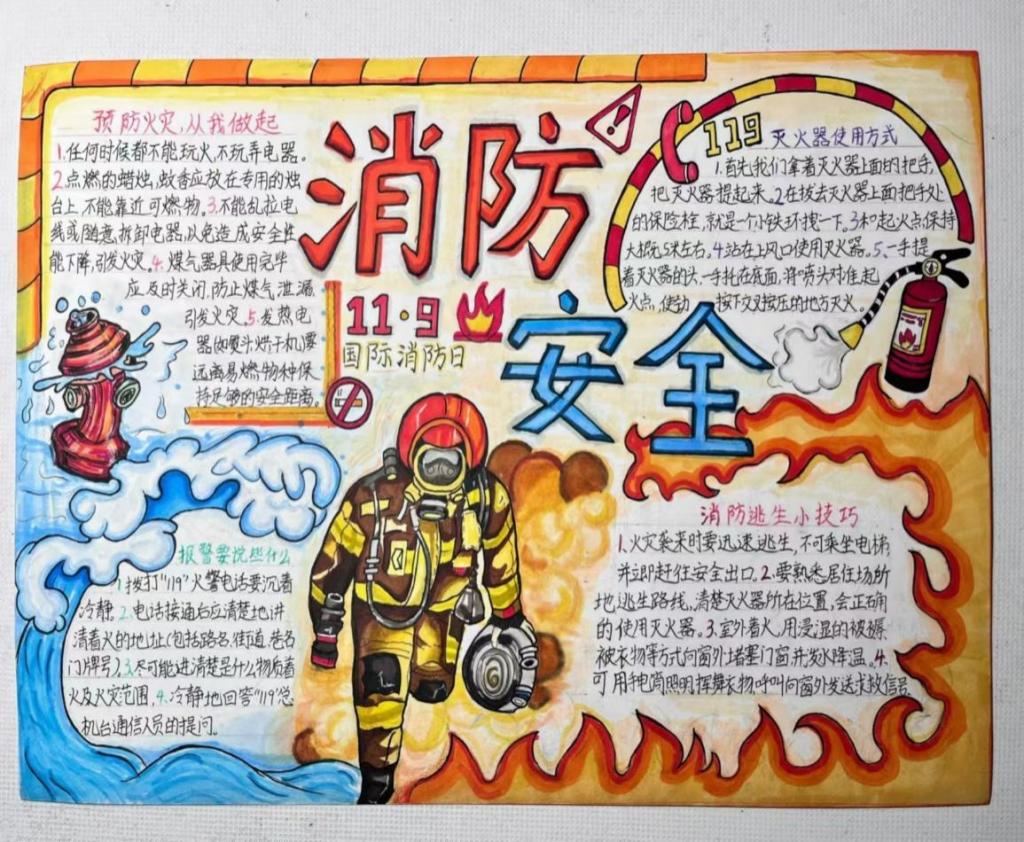 预防火灾,从我做起
1.任何时候都不能玩火,不玩弄电器。
2.点燃的蜡烛,蚊香应放在专用的烛
台上,不能靠近可燃物。3.不能乱拉电
线或随意拆卸电器,以免造成安全性
能下降,引发火灾。4.煤气器具使用完毕
应及时关闭,防止煤气泄漏
引发火灾。5.发热电
器(如熨斗烘干机)要
远离易燃物种保
持足够的安全距离。
消防
安全
11·9
国际消防日
119
灭火器使用方式
1.首先我们拿着灭火器上面的把手,
把灭火器提起来。2.在拔去灭火器上面把手处
的保险栓,就是一个小铁环拽一下。3.和起火点保持
大概5米左右。4.站在上风口使用灭火器。5.一手提
着灭火器的头,一手托在底面,将喷头对准起
火点,使劲按下交叉按压的地方灭火。
报警要说些什么
1.拨打"119"火警电话要沉着
冷静。2.电话接通后应清楚地讲
清着火的地址(包括路名、街道、巷名
门牌号)。3.尽可能讲清楚是什么物质着
火及火灾范围,4.冷静地回答"119"总
机台通信人员的提问。
消防逃生小技巧
1.火灾袭来时要迅速逃生,不可乘坐电梯,
并立即赶往安全出口。2.要熟悉居住场所
地逃生路线,清楚灭火器所在位置,会正确
的使用灭火器。3.室外着火,用浸湿的被褥
被衣物等方式向窗外堵塞门窗并泼水降温。4.
可用手电筒照明挥舞衣物,呼叫向窗外发送求救信号